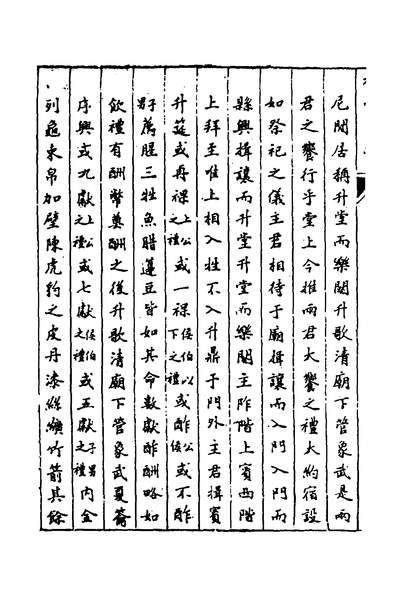 尼閒居稱升堂而樂闋升歌清廟下管象武是兩
君之饗行乎堂上今推兩君大饗之禮大約宿設
如祭祀之儀主君相待于廟揖讓而入門入門而
縣興揖讓而升堂升堂而樂闋主阼階上賓西階
上拜至唯上相入牲不入升鼎于門外主君揖賓
升筵或再祼上公之禮或一祼侯伯以下之禮或酢公或不酢侯
薦腥三牲魚腊籩豆皆如其命數獻酢酬略如
飲禮有酬幣奠酬之後升歌清廟下管象武夏籥
序興或九獻上公之禮或七獻侯伯之禮或五獻子男之禮内金
列龜束帛加璧陳虎豹之皮丹漆絲纊竹箭其餘